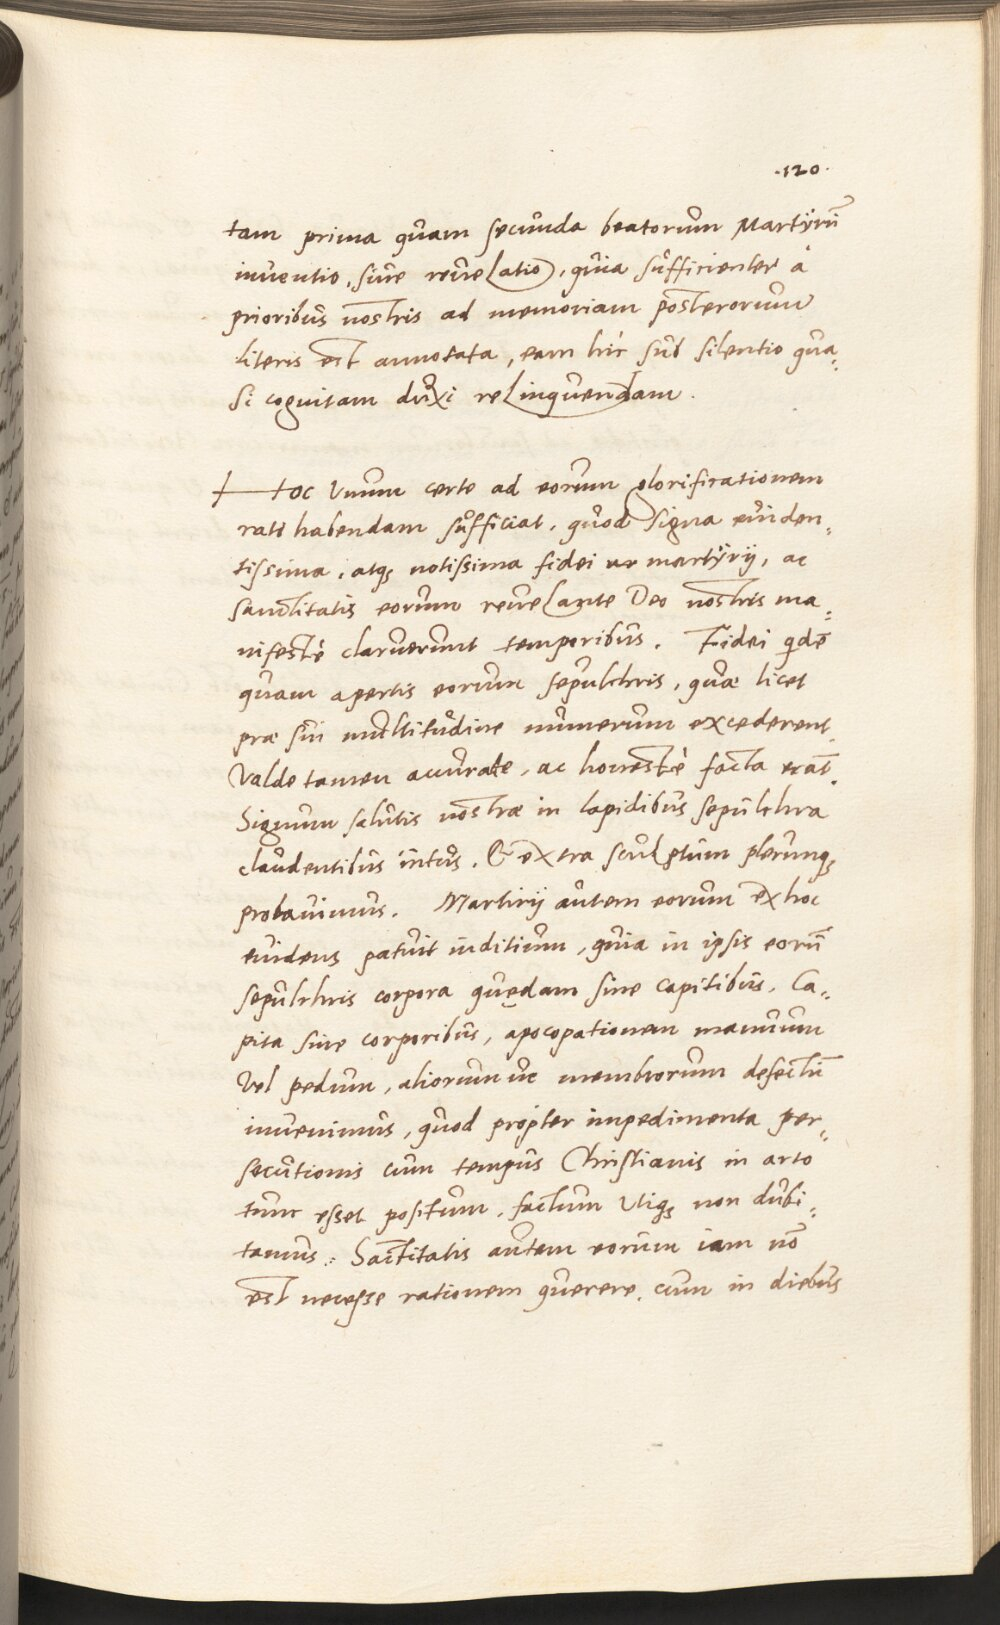 .120.
tam prima quam secunda beatorum Martÿrũ
inventio, sive revelatio, quia sufficienter à
prioribus nostris ad memoriam posterorum
literis est annotata, eam hìc sub silentio qua=
si cognitam duxi relinquendam.
Hoc Unum certe ad eorum glorificationem
rati habendam sufficiat, quod signa eviden=
tissima, atq; notissima fidei martÿrij, ac
sanctitatis eorum revelante Deo nostris ma=
nifestè claruerunt temporibus. Fidei qidẽ
quam apertis eorum sepulchris, quæ licet
præ sui multitudine numerum excederent,
Valde tamen accurate, ac honestè facta erãt.
Signum salutis nostræ in lapidibus sepulchra
claudentibus intus, & extra sculptum plerunq;
probavimus. Martirij autem eorum ex hoc
evidens patuit inditium, quia in ipsis eorũ
sepulchris corpora quędam sine capitibus, Ca=
pita sine corporibus, apocopationem manuum
Vel pedum, aliorum ve membrorum defectũ
invenimus, quod propter impedimenta per=
secutionis cum tempus Christianis in arto
tunc esset positum, factum Utiq; non dubi=
tamus: Sactitatis autem eorum iam nõ
est necesse rationem querere, cum in diebus